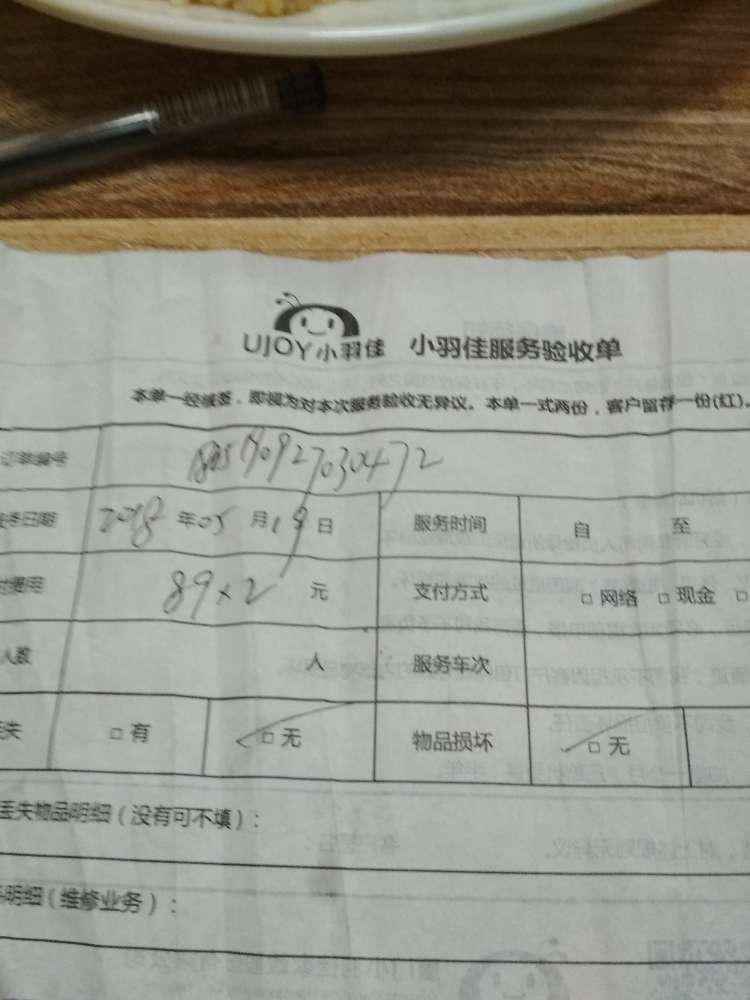 UJOY小羽佳 小羽佳服务验收单
本单一经缄签，即视为对本次服务验收无异议。本单一式两份，客户留存一份(红)。
订单编号
务日期 2018年05月19日 服务时间 自 至
费用 89×2 元 支付方式 □ 网络 □ 现金 □
人数 人 服务车次
失 □ 有 □ 无 物品损坏 □ 无
丢失物品明细（没有可不填）：
明细（维修业务）：